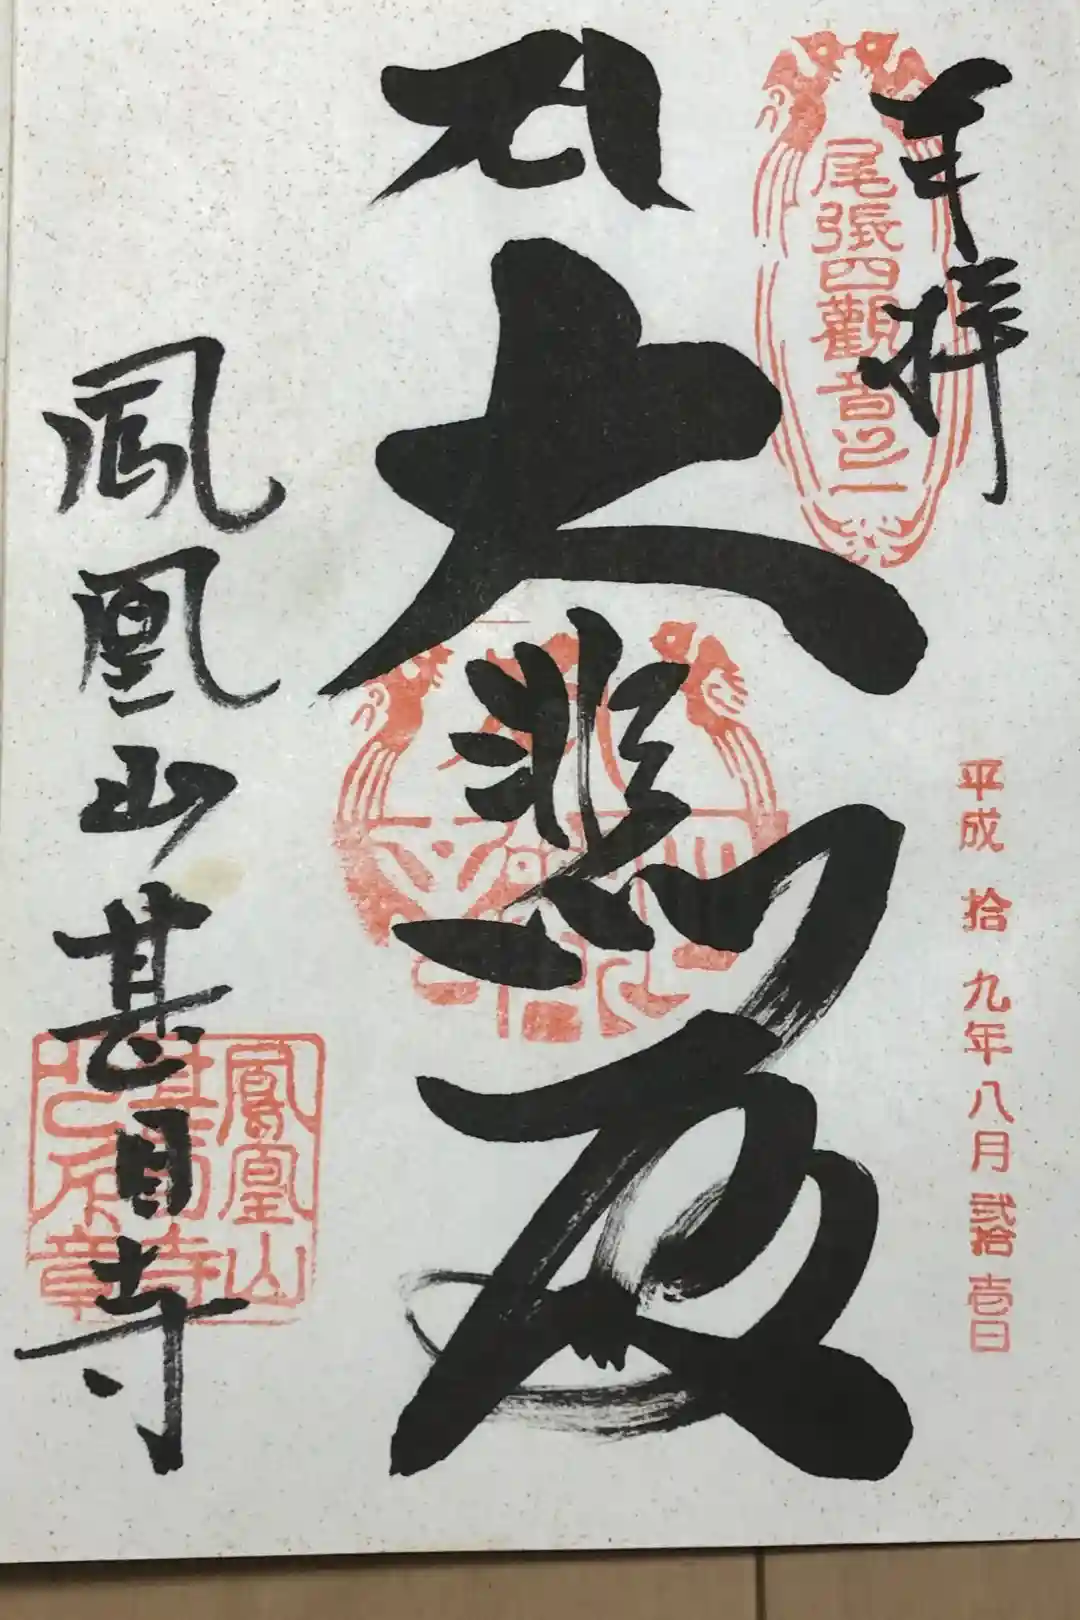 奉拝
尾張四觀音之一
平成拾九年八月弐拾壱日
大悲殿
鳳凰山甚目寺
鳳凰山
甚目寺
之印章